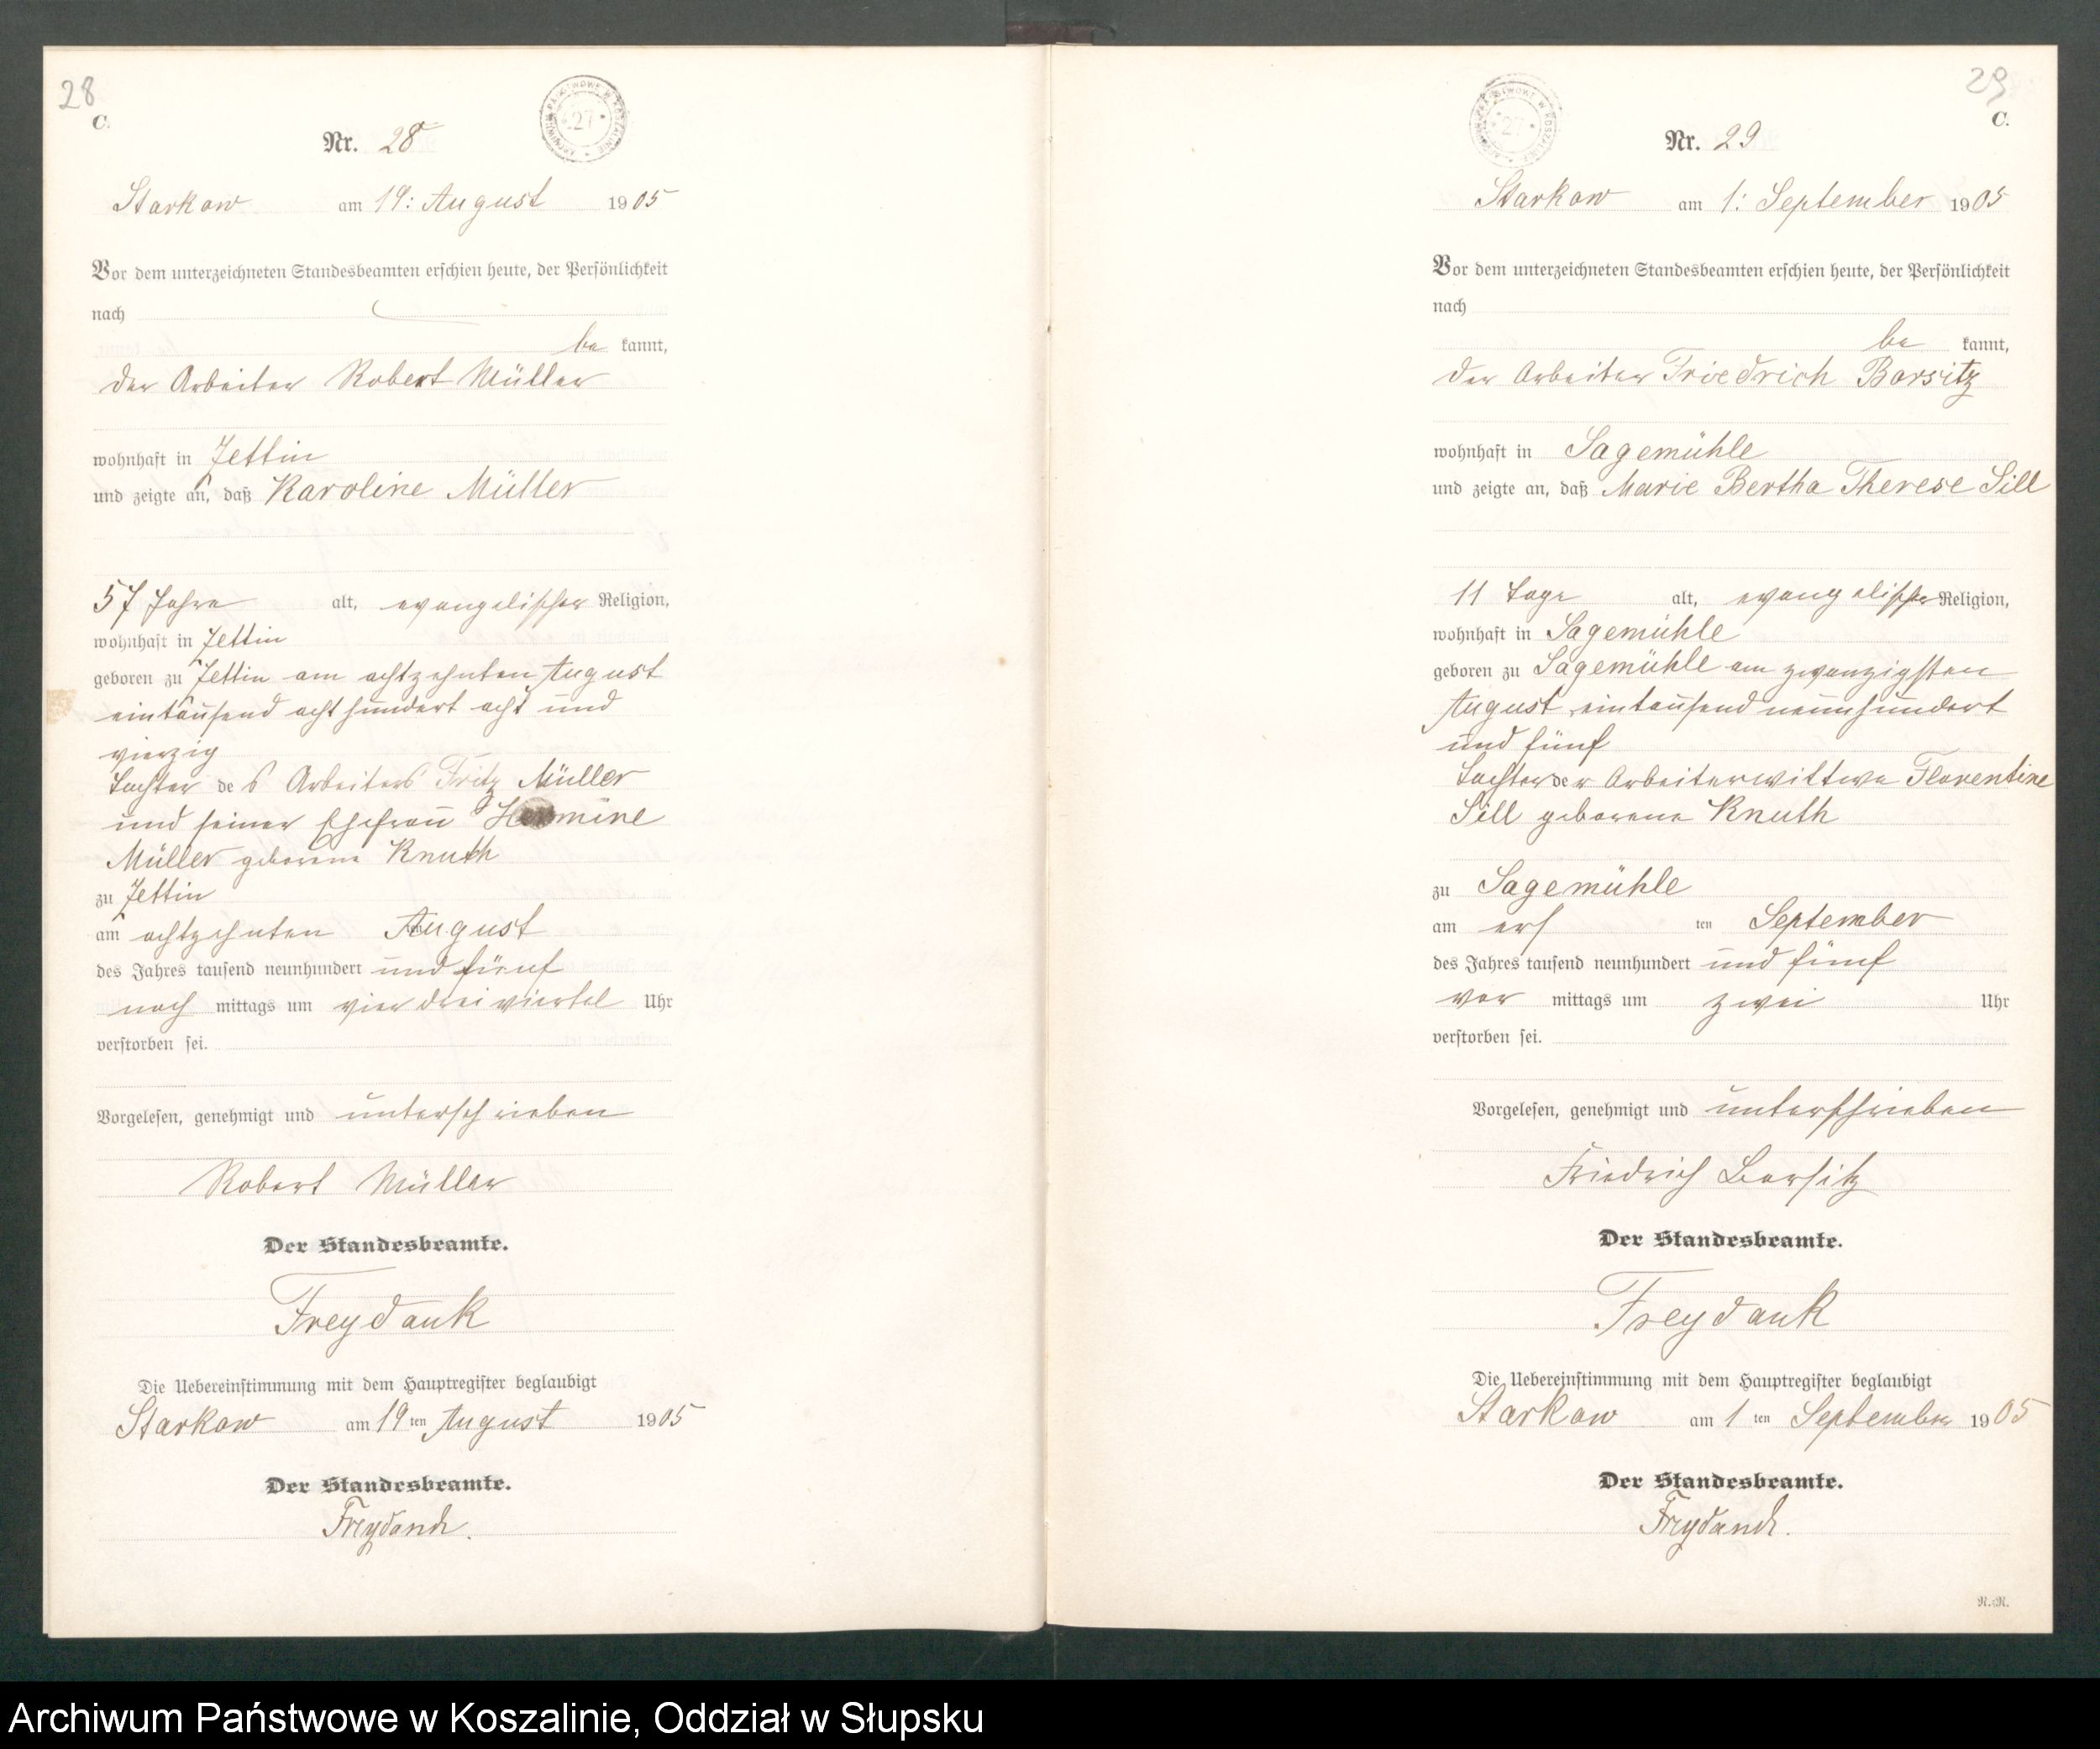 28
C.
Nr. 28
Starkow am 19: August 1905
Vor dem unterzeichneten Standesbeamten erschien heute, der Persönlichkeit
nach
be kannt,
der Arbeiter Robert Müller
wohnhaft in Jettin
und zeigte an, daß Karoline Müller
57 Jahre alt, evangelischer Religion,
wohnhaft in Jettin
geboren zu Jettin am achtzehnten August
eintausend acht hundert acht und
vierzig
Tochter des Arbeiters Fritz Müller
und seiner Ehefrau Hermine
Müller geborene Knuth
zu Jettin
am achtzehnten August
des Jahres tausend neunhundert und fünf
nach mittags um vier dreiviertel Uhr
verstorben sei.
Vorgelesen, genehmigt und unterschrieben
Robert Müller
Der Standesbeamte.
Freydank
Die Uebereinstimmung mit dem Hauptregister beglaubigt
Starkow am 19 ten August 1905
Der Standesbeamte.
Freydank.
29
C.
Nr. 29
Starkow am 1: September 1905
Vor dem unterzeichneten Standesbeamten erschien heute, der Persönlichkeit
nach
be kannt,
der Arbeiter Friedrich Borsitz
wohnhaft in Sagemühle
und zeigte an, daß Marie Bertha Therese Sill
11 Tage alt, evangelischer Religion,
wohnhaft in Sagemühle
geboren zu Sagemühle am zwanzigsten
August eintausend neunhundert
und fünf
Tochter der Arbeiterwittwe Florentine
Sill geborene Knuth
zu Sagemühle
am ersten September
des Jahres tausend neunhundert und fünf
vor mittags um zwei Uhr
verstorben sei.
Vorgelesen, genehmigt und unterschrieben
Friedrich Borsitz
Der Standesbeamte.
Freydank
Die Uebereinstimmung mit dem Hauptregister beglaubigt
Starkow am 1 ten September 1905
Der Standesbeamte.
Freydank.
N.N.
Archiwum Państwowe w Koszalinie, Oddział w Słupsku